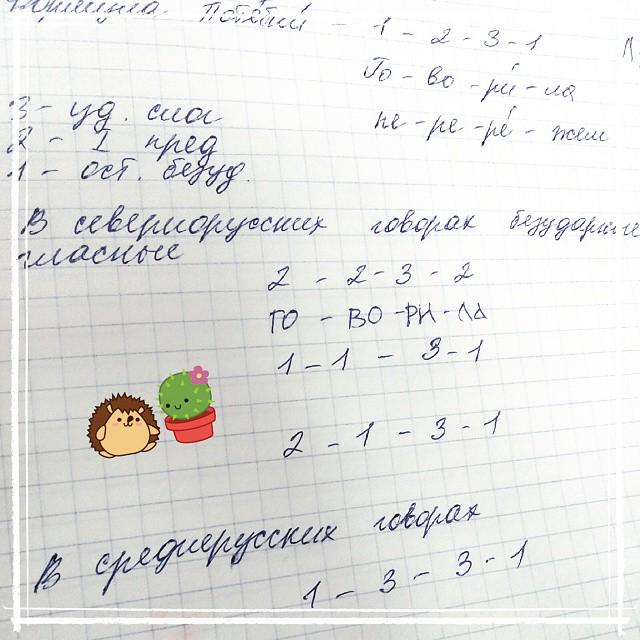 Формула Потебни - 1 - 2 - 3 - 1
Го - во - ри́ - ла
пе - ре - ре́ - жем
3 - уд. слог
2 - I пред
1 - ост. безуд.
В севернорусских говорах безударные
гласные
2 - 2 - 3 - 2
ГО - ВО - РИ - ЛА
1 - 1 - 3 - 1
2 - 1 - 3 - 1
В среднерусских говорах
1 - 3 - 3 - 1